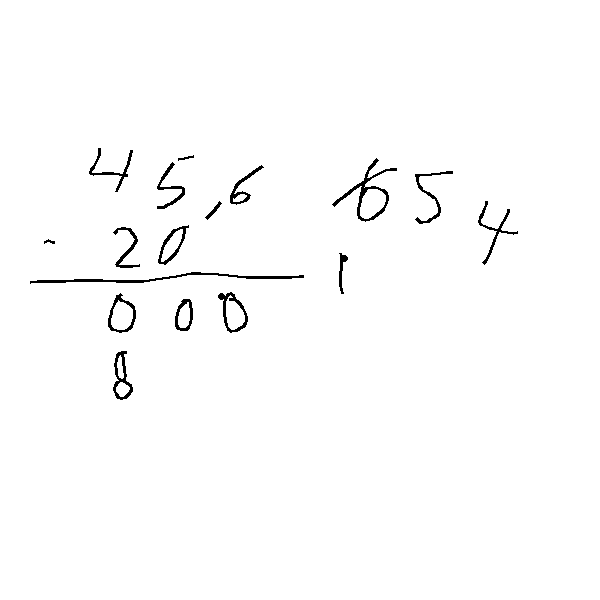 45,6 654
- 20
1
000
8